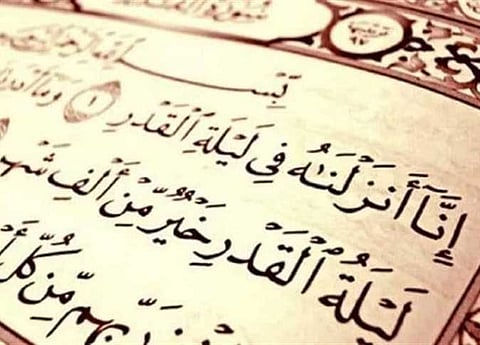 بِسْمِ ٱللَّهِ
إِنَّآ أَنزَلْنَٰهُ فِى لَيْلَةِ ٱلْقَدْرِ ١ وَمَآ
لَيْلَةُ ٱلْقَدْرِ خَيْرٌ مِّنْ أَلْفِ شَهْ
رَبِّهِم مِّن كُلِّ